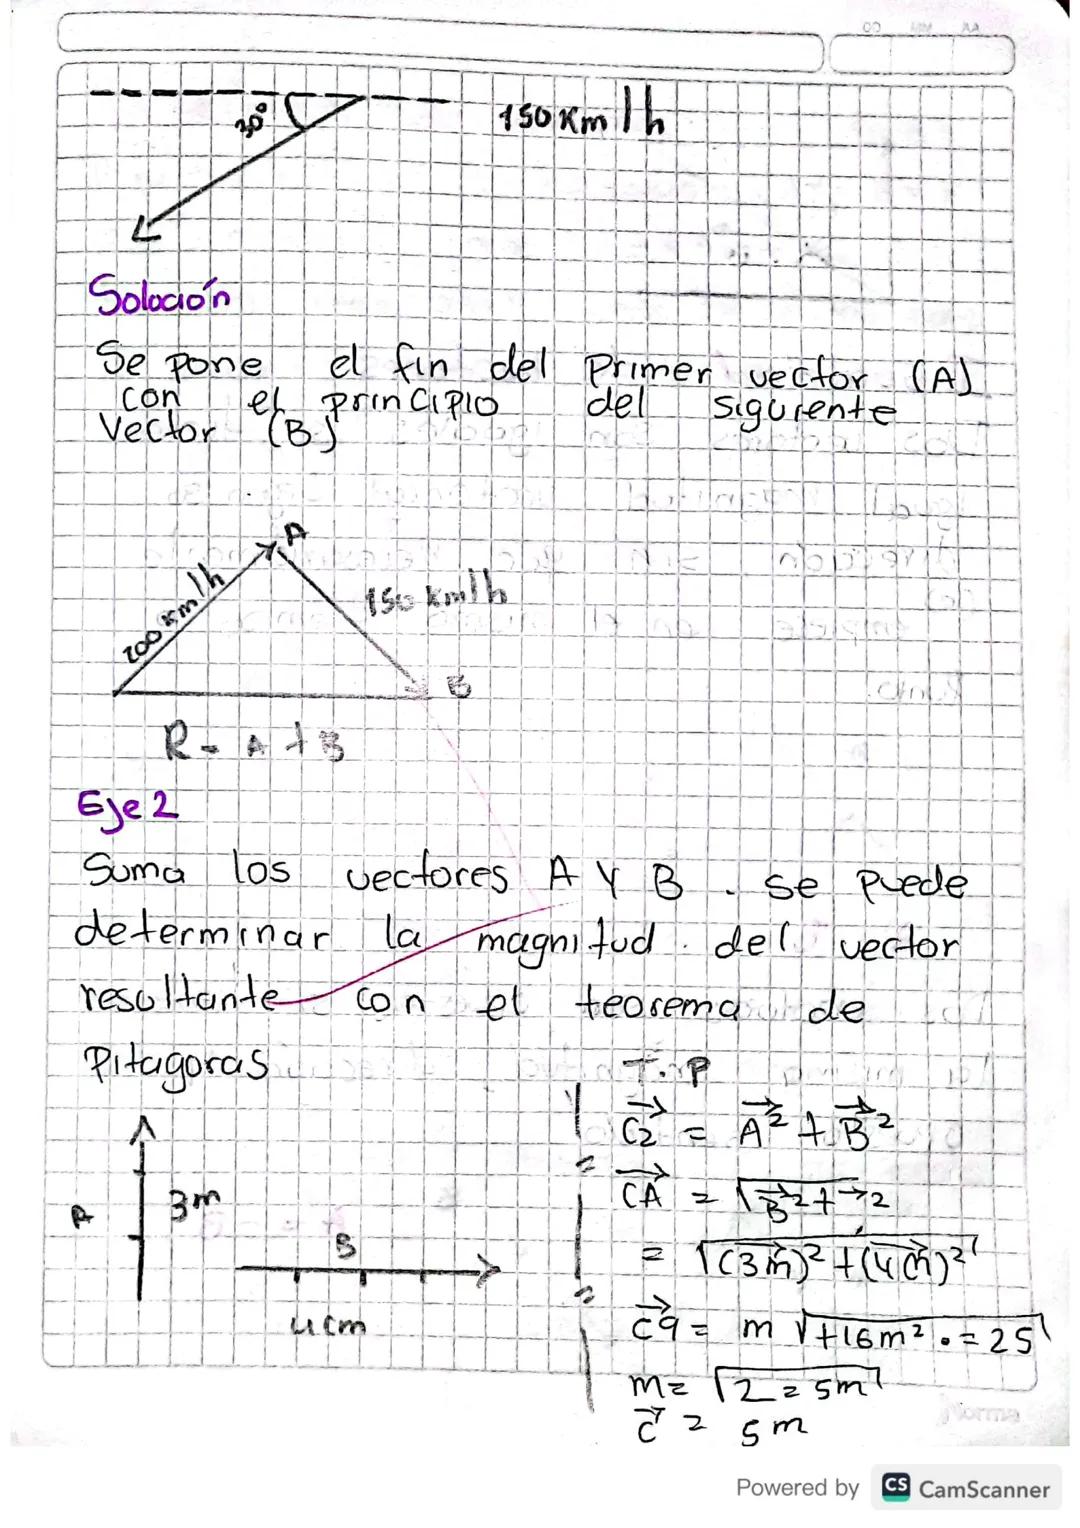 30°
150 Km/h
Solución
Se pone el fin del Primer vector (A)
con el principio del siguiente
Vector (B)
A
200 km/h
150 km/h
B
R = A + B
Eje 2
Suma los vectores A Y B. se puede
determinar la magnitud del vector
resultante con el teorema de
Pitagoras
T.P
C2 = A² + B²
CA = √B² + ²
= √(3m)² + (4m)²
C9 = m √+16m² . = 25
m = √2 = 5m
C = 5m
A
3m
B
4cm
Powered by CS CamScanner